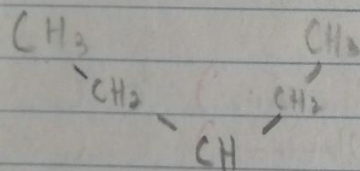 CH3 CH3
CH2 CH2
CH